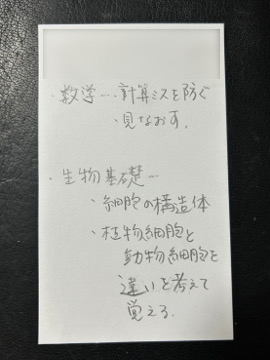 ・数学…計算ミスを防ぐ
・見なおす。
・生物基礎…
・細胞の構造体
・植物細胞と
動物細胞を
違いを考えて
覚える。